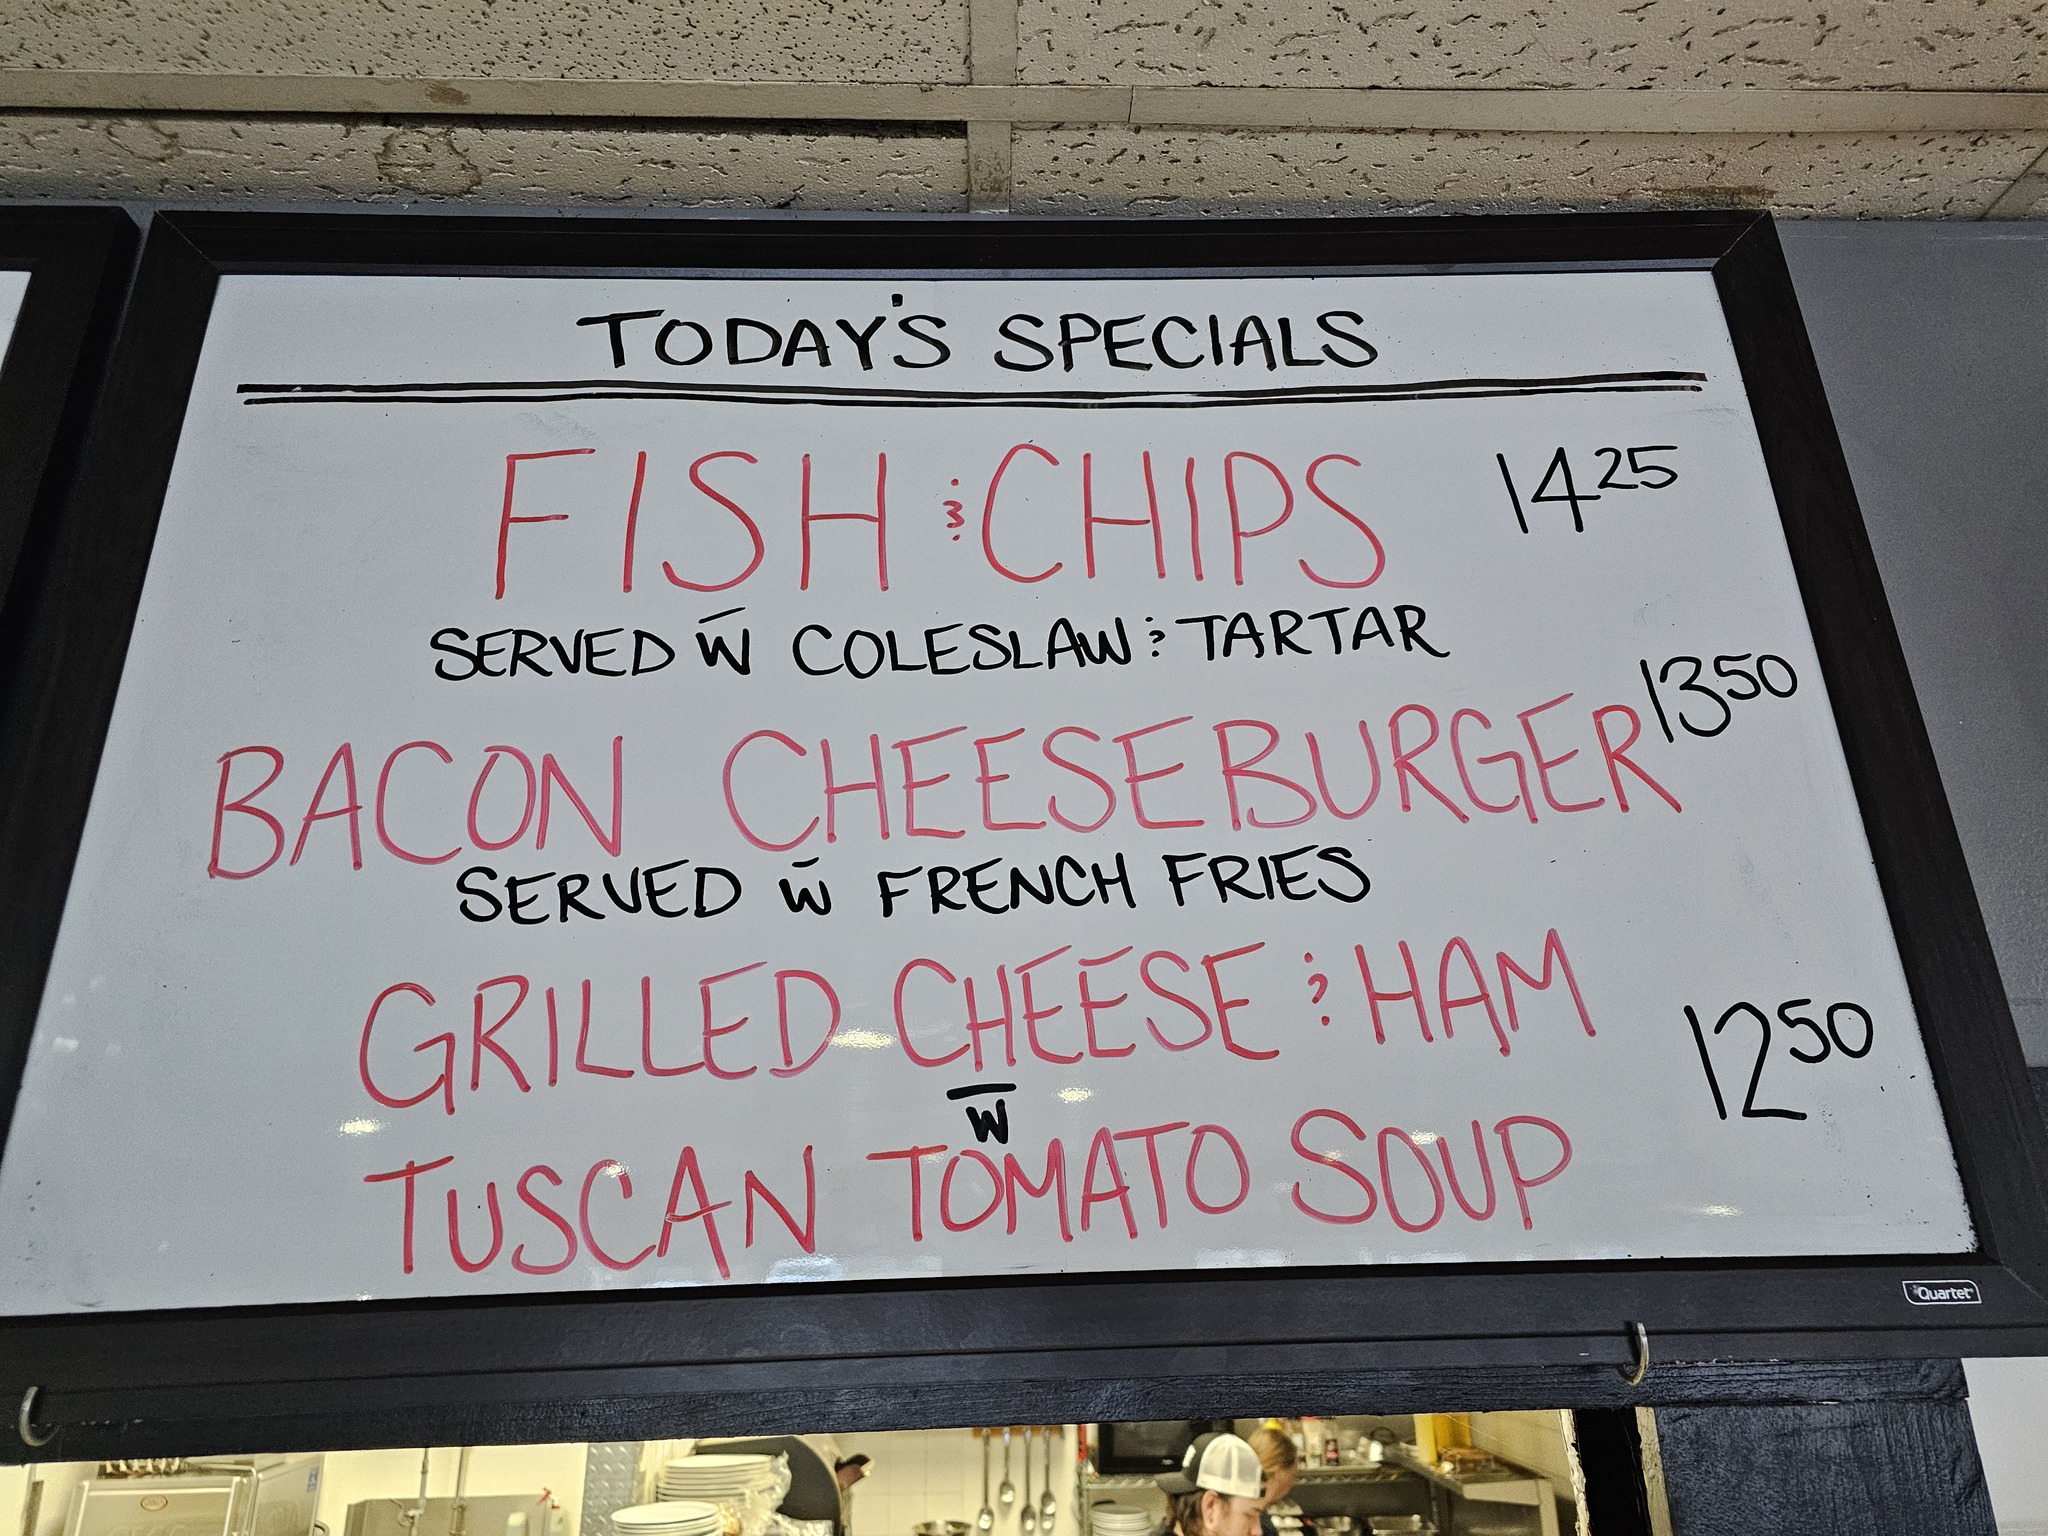 TODAY'S SPECIALS
FISH & CHIPS 14 25
SERVED W̄ COLESLAW & TARTAR
BACON CHEESEBURGER 13 50
SERVED W̄ FRENCH FRIES
GRILLED CHEESE & HAM
W̄ 12 50
TUSCAN TOMATO SOUP
Quartet